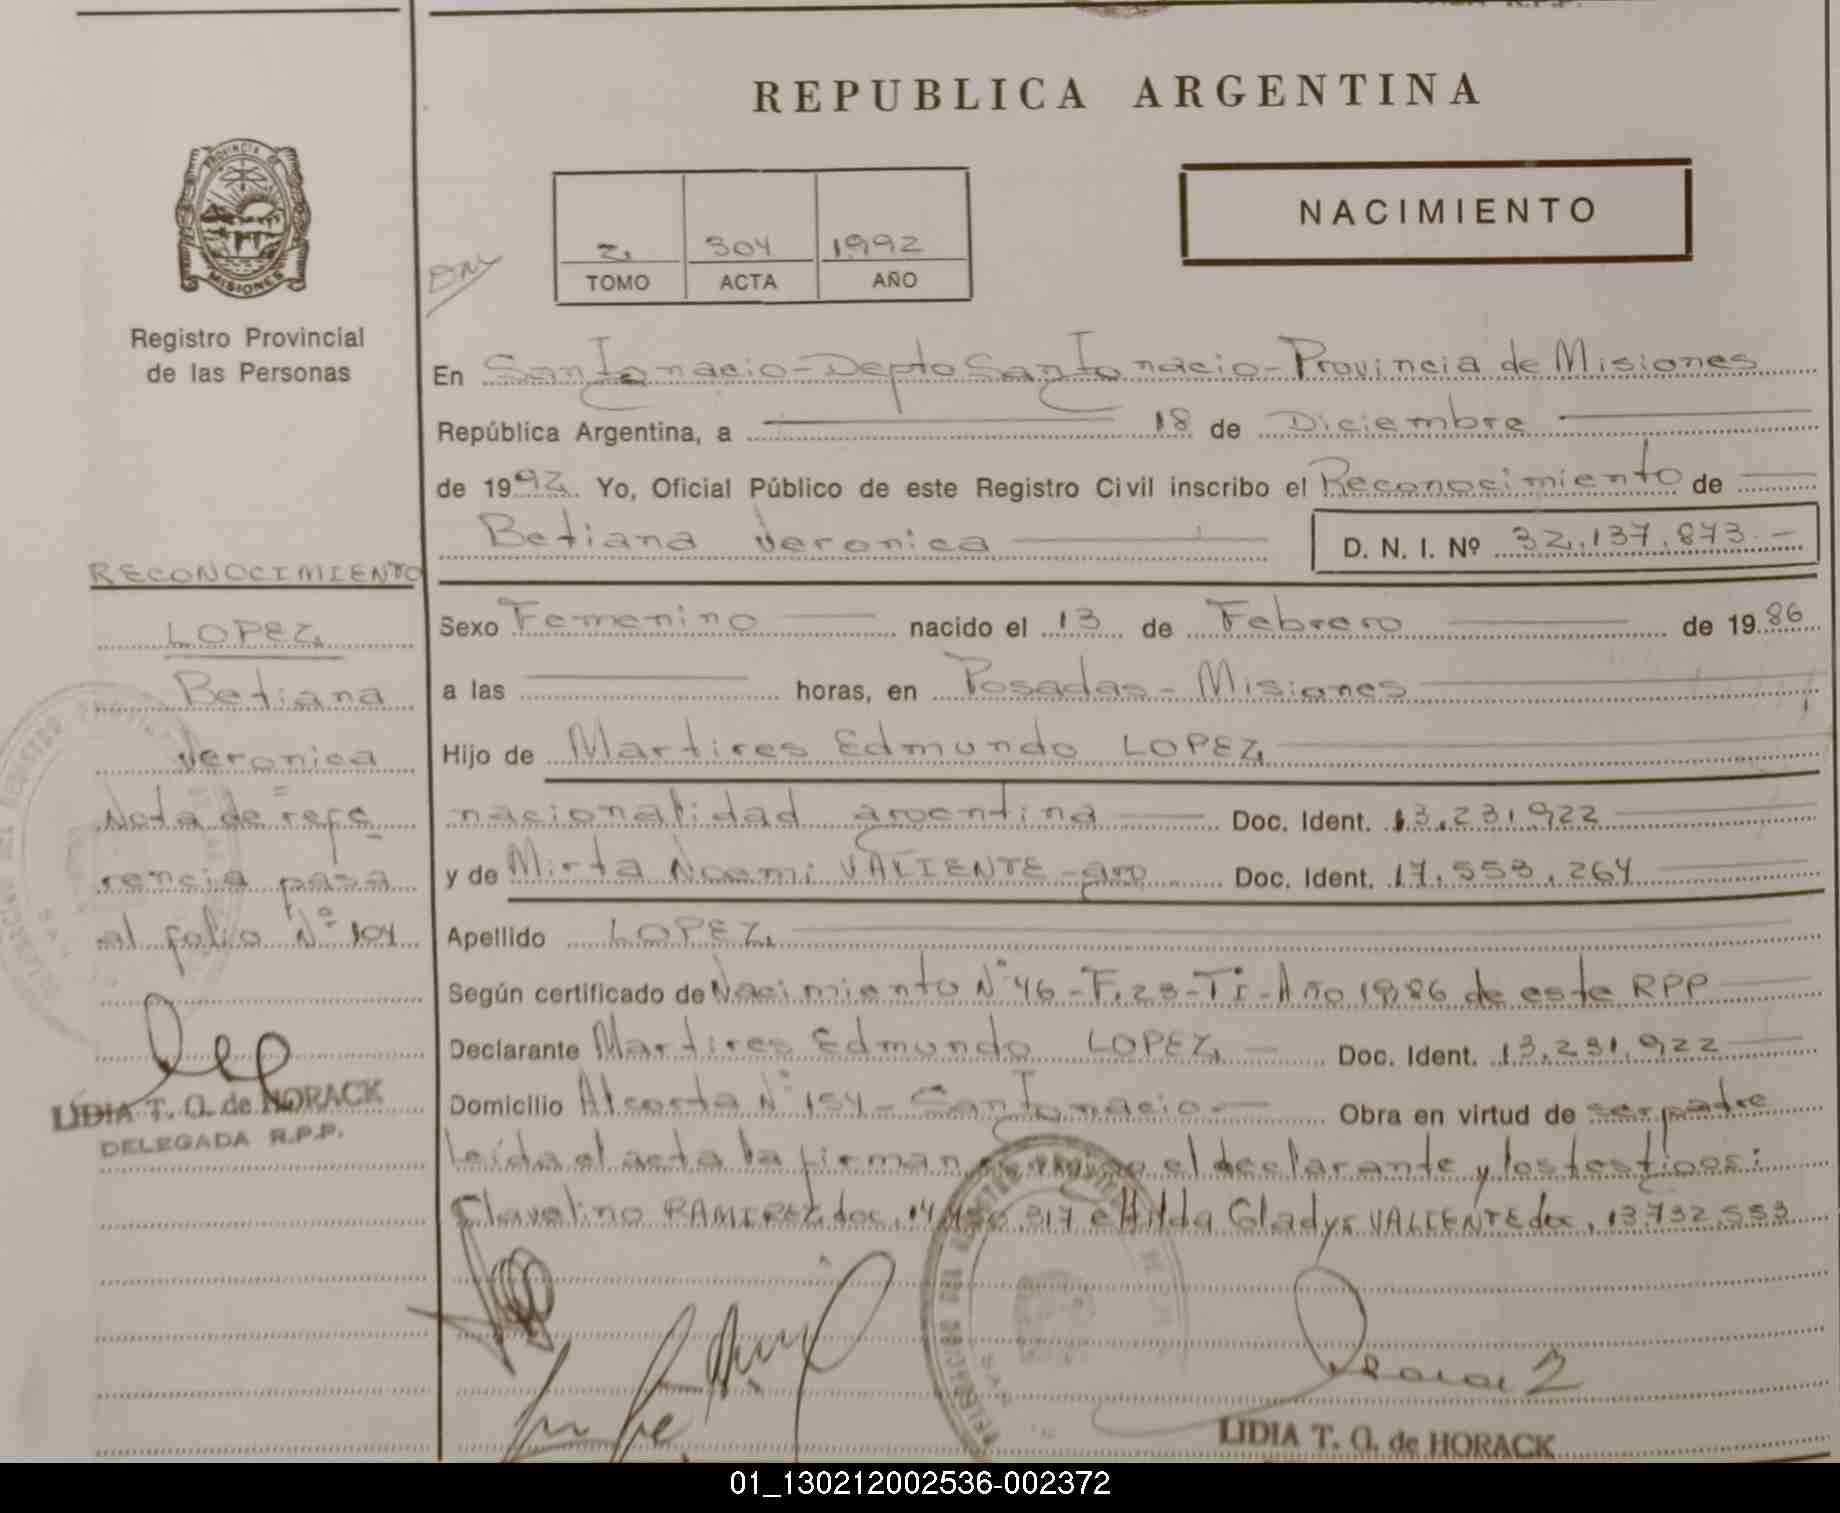 REPUBLICA ARGENTINA
PROVINCIA DE
MISIONES
Registro Provincial
de las Personas
NACIMIENTO
2 304 1992
TOMO ACTA AÑO
En San Ignacio - Depto San Ignacio - Provincia de Misiones
República Argentina, a 18 de Diciembre
de 1992 Yo, Oficial Público de este Registro Civil inscribo el Reconocimiento de
Betiana Veronica D. N. I. Nº 32.137.873.-
Sexo Femenino nacido el 13 de Febrero de 1986
a las horas, en Posadas - Misiones
Hijo de Martires Edmundo LOPEZ
nacionalidad argentina Doc. Ident. 13.231.922
y de Mirta Noemi VALIENTE - arg Doc. Ident. 17.553.264
Apellido LOPEZ
Según certificado de Nacimiento Nº 46 - F. 23 - T I - Año 1986 de este RPP
Declarante Martires Edmundo LOPEZ - Doc. Ident. 13.231.922
Domicilio Alcorta Nº 154 - San Ignacio - Obra en virtud de ser padre
Leída el acta la firman el declarante y los testigos:
Clavelino RAMIREZ doc. 317 e Hilda Gladys VALIENTE doc. 13.732.553
RECONOCIMIENTO
LOPEZ
Betiana
Veronica
Nota de refe
rencia pasa
al folio Nº 104
LIDIA T. O. de HORACK
DELEGADA R.P.P.
LIDIA T. O. de HORACK
01_130212002536-002372